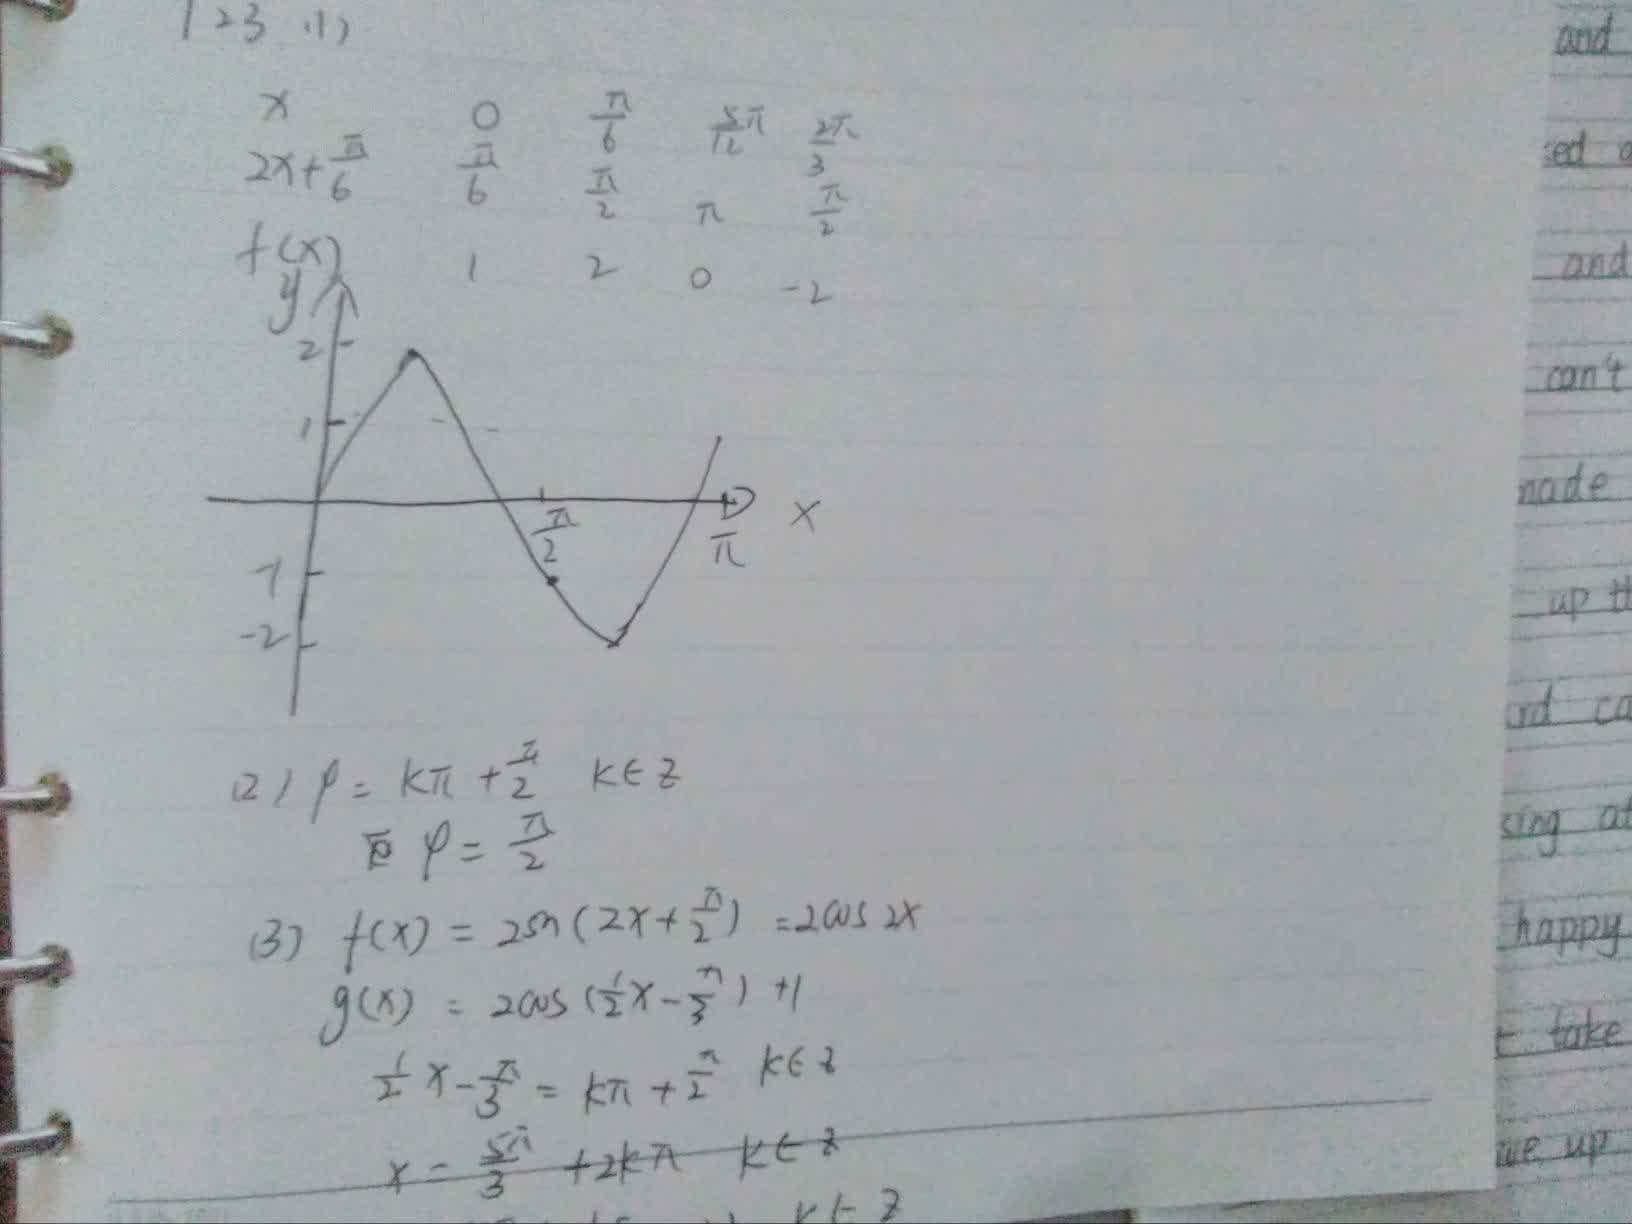 123 (1)
x 0 π/6 5/12π 2π/3
2x+π/6 π/6 π/2 π π/2
f(x) 1 2 0 -2
y
2
1
π/2 π x
-1
-2
(2) φ = kπ + π/2 k∈Z
取 φ = π/2
(3) f(x) = 2sin(2x+π/2) = 2cos2x
g(x) = 2cos(1/2x-π/3)+1
1/2x-π/3 = kπ+π/2 k∈Z
x = 5π/3 +2kπ k∈Z
k∈Z
and
and
can't
up
happy
take
up